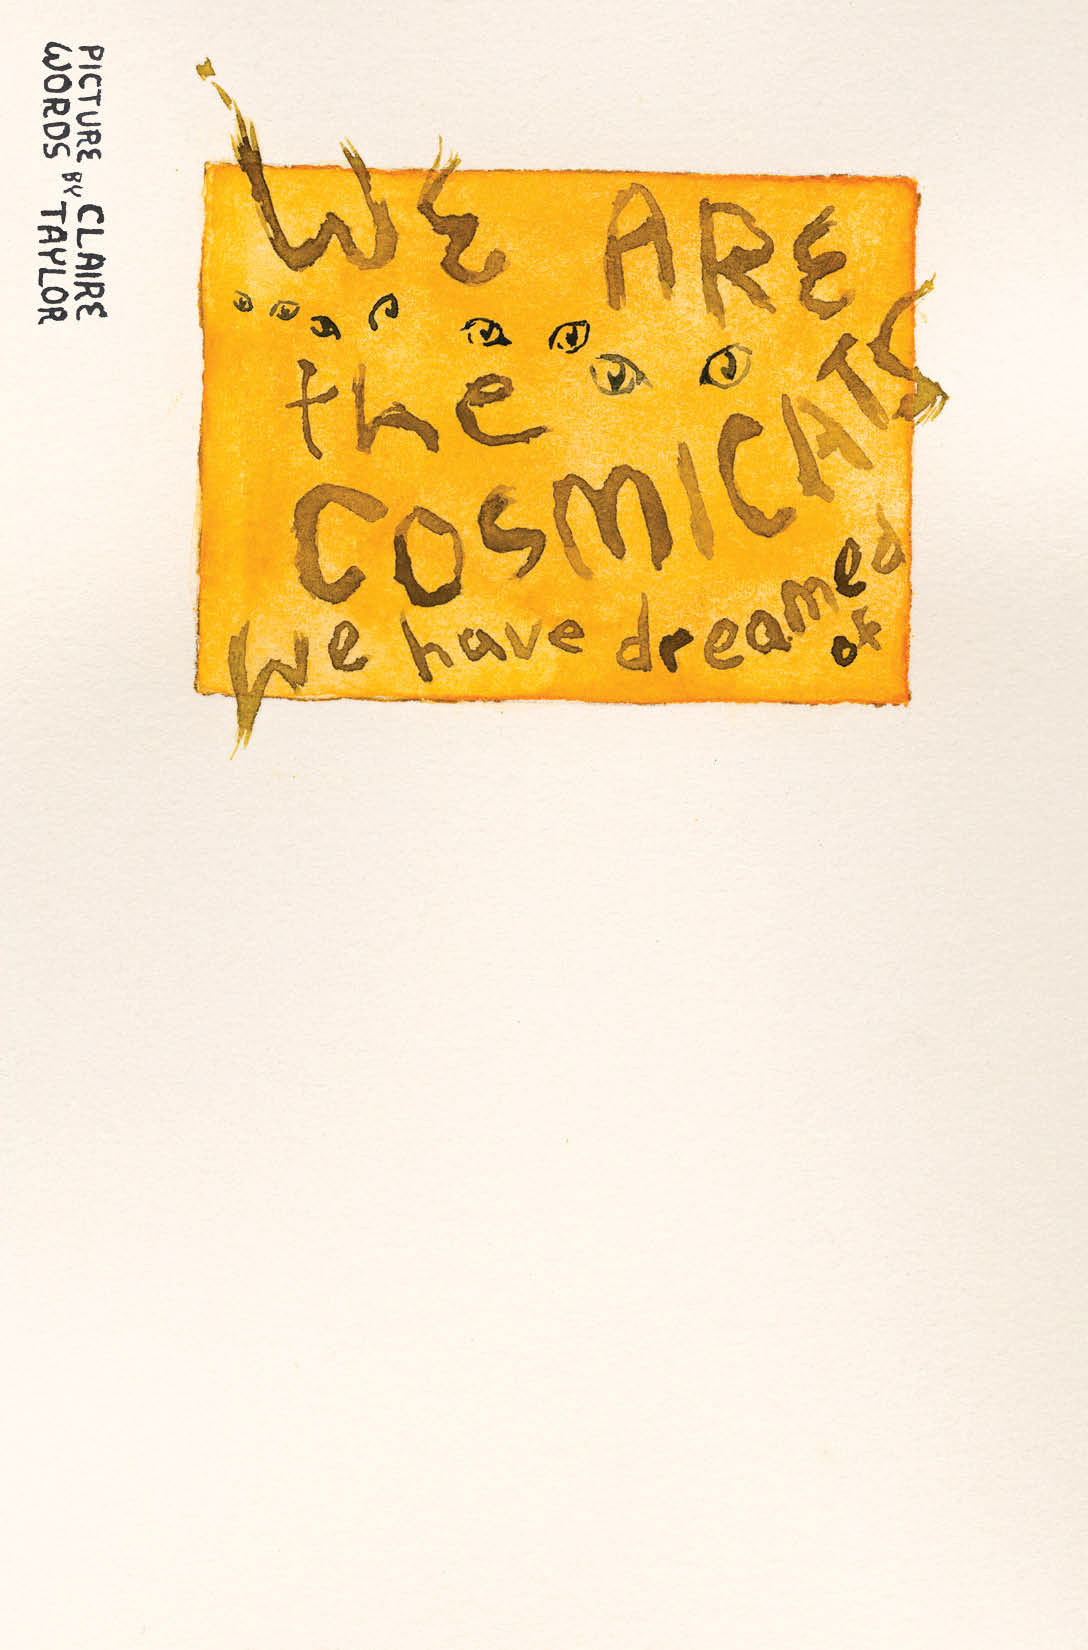 PICTURE BY CLAIRE
WORDS TAYLOR
WE ARE
the
COSMICATS
We have dreamed
of